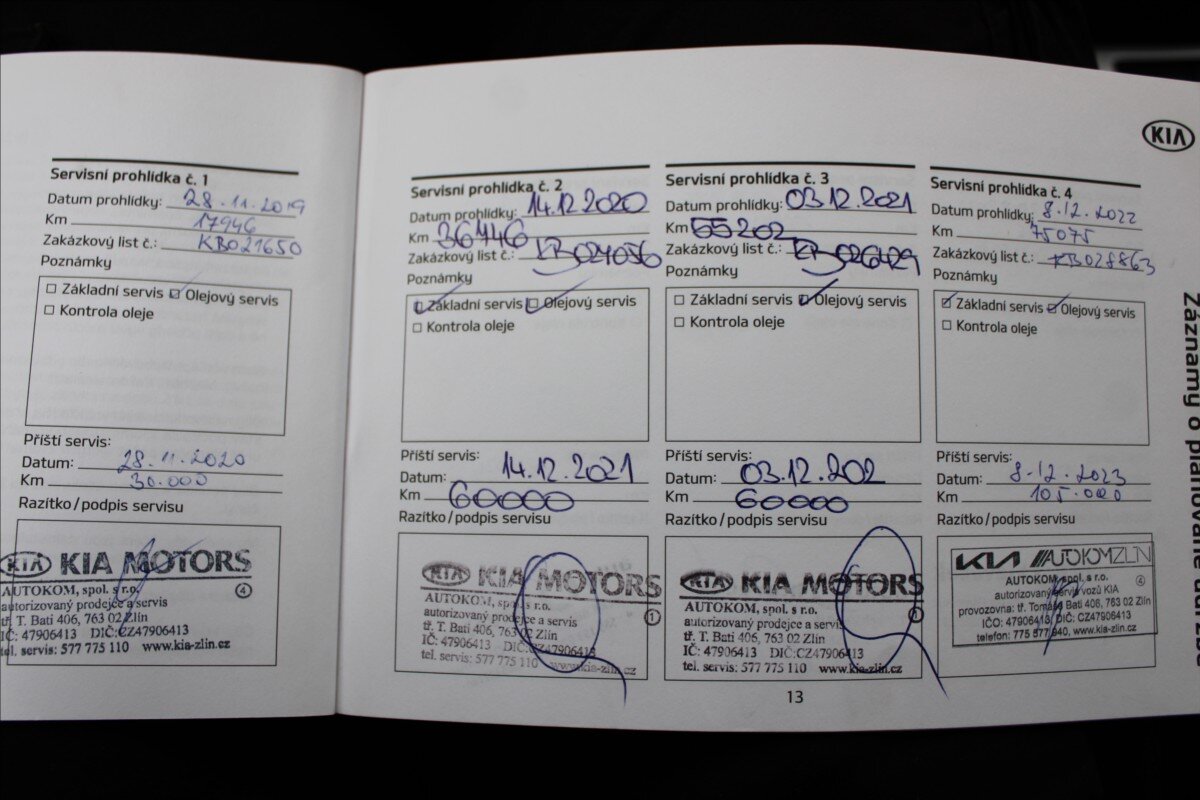 KIA
Servisní prohlídka č. 1
Datum prohlídky: 28.11.2019
Km 17946
Zakázkový list č.: KB021650
Poznámky
Základní servis Olejový servis
Kontrola oleje
Příští servis:
Datum: 28.11.2020
Km 30.000
Razítko/podpis servisu
KIA KIA MOTORS
AUTOKOM, spol. s r.o. 4
autorizovaný prodejce a servis
tř. T. Bati 406, 763 02 Zlín
IČ: 47906413 DIČ:CZ47906413
tel. servis: 577 775 110 www.kia-zlin.cz
Servisní prohlídka č. 2
Datum prohlídky: 14.12.2020
Km 36446
Zakázkový list č.: KB024056
Poznámky
Základní servis Olejový servis
Kontrola oleje
Příští servis:
Datum: 14.12.2021
Km 60000
Razítko/podpis servisu
KIA KIA MOTORS
AUTOKOM, spol. s r.o. 1
autorizovaný prodejce a servis
tř. T. Bati 406, 763 02 Zlín
IČ: 47906413 DIČ:CZ47906413
tel. servis: 577 775 110 www.kia-zlin.cz
Servisní prohlídka č. 3
Datum prohlídky: 03.12.2021
Km 55202
Zakázkový list č.: KB026429
Poznámky
Základní servis Olejový servis
Kontrola oleje
Příští servis:
Datum: 03.12.202
Km 60000
Razítko/podpis servisu
KIA KIA MOTORS
AUTOKOM, spol. s r.o.
autorizovaný prodejce a servis
tř. T. Bati 406, 763 02 Zlín
IČ: 47906413 DIČ:CZ47906413
tel. servis: 577 775 110 www.kia-zlin.cz
Servisní prohlídka č. 4
Datum prohlídky: 8.12.2022
Km 75075
Zakázkový list č.: KB028863
Poznámky
Základní servis Olejový servis
Kontrola oleje
Příští servis:
Datum: 8.12.2023
Km 105.000
Razítko/podpis servisu
KIA AUTOKOMZLIN
AUTOKOM, spol. s r.o. 4
autorizovaný servis vozů KIA
provozovna: tř. Tomáše Bati 406, 763 02 Zlín
IČO: 47906413, DIČ: CZ47906413
telefon: 775 577 640, www.kia-zlin.cz
13
Záznamy o plánované